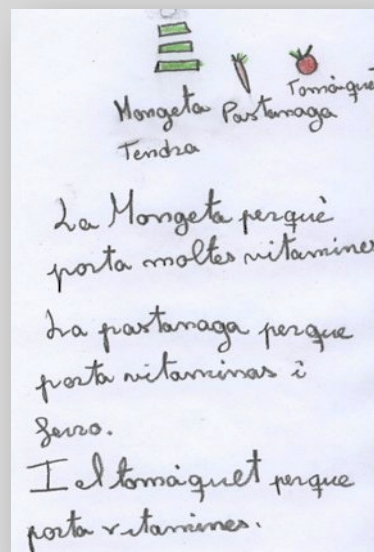 Mongeta Pastanaga Tomàquet
Tendra
La Mongeta perquè
porta moltes vitamines
La pastanaga perque
porta vitaminas i
ferro.
I el tomàquet perque
porta vitamines.